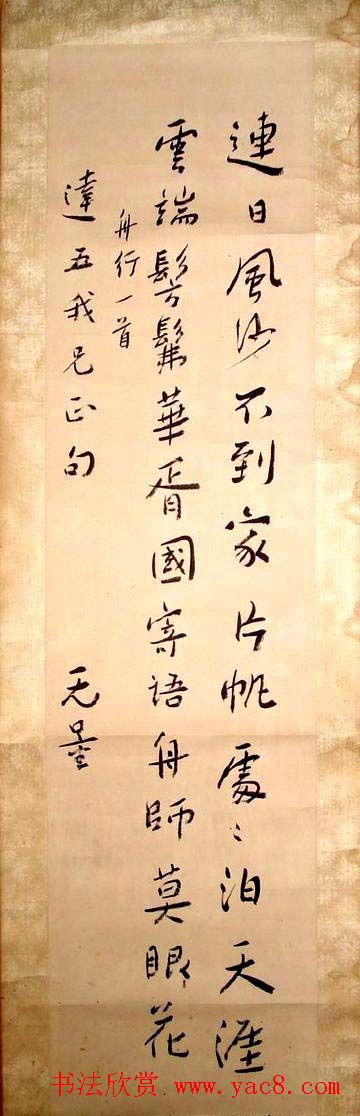 連日風沙不到家片帆處〻泊天涯
雲端髣髴華胥國寄語舟師莫眼花
舟行一首
達五我兄正句
无量
书法欣赏 www.yac8.com